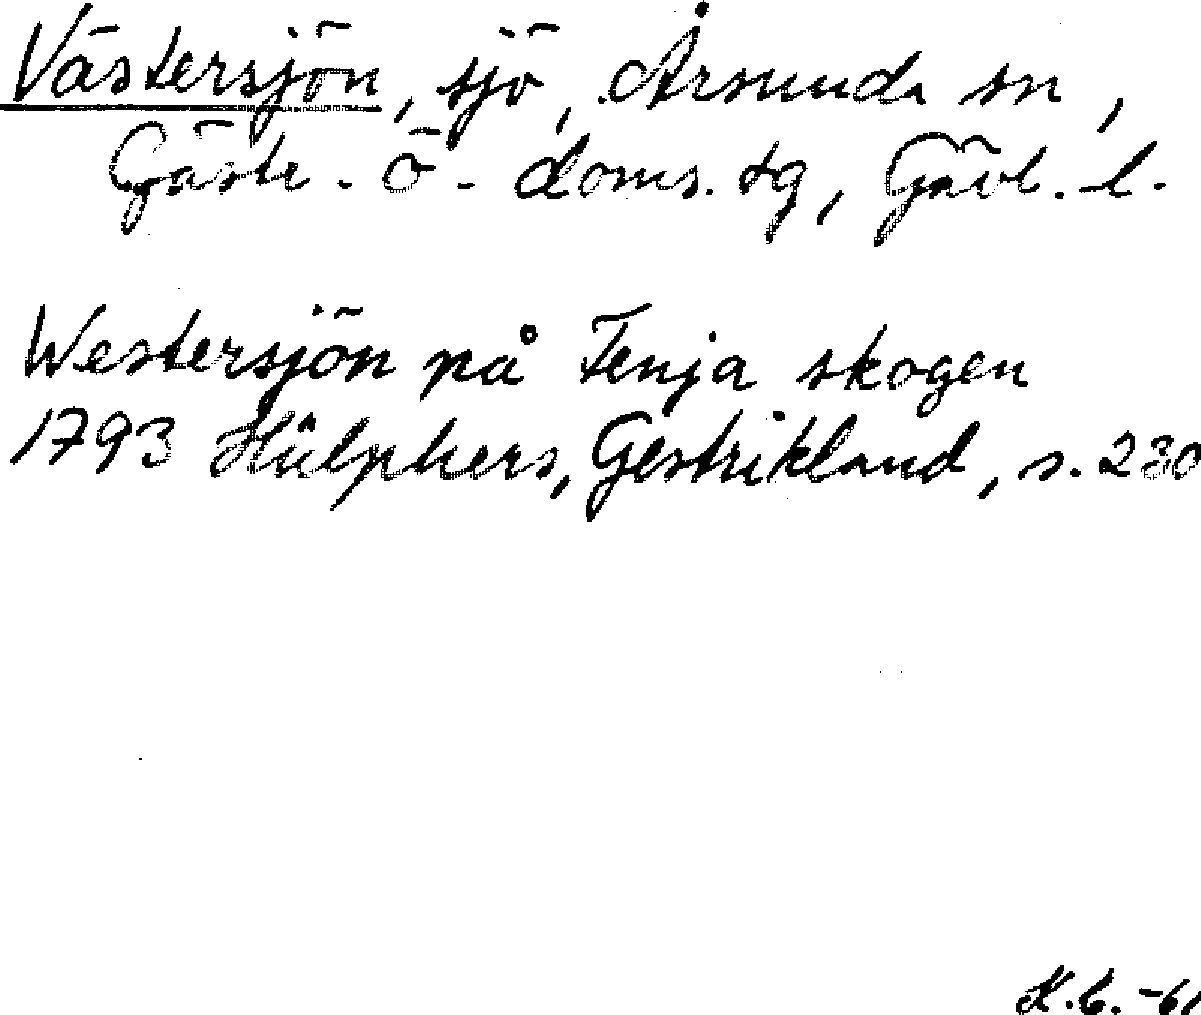 Västersjön, sjö, Årsunda sn,
Gästr. Ö. doms. tg, Gävl. l.
Westersjön på Fenja skogen
1793 Hülphers, Gestrikland, s. 230